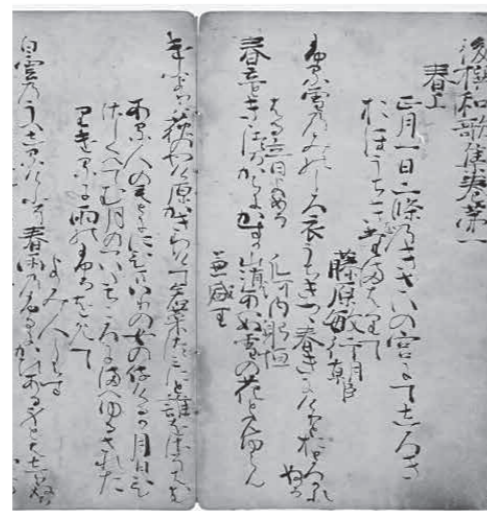 後撰和歌集巻第一
春上
正月一日二條のきさいの宮にてしろき
おほうちきをたまはりて
藤原敏行朝臣
ふる雪乃みのしろ衣うちきつゝ春きにけりとおとろかれ
ぬる
はる立日よめる 凡河内躬恒
春立ときゝつるからにかすか山消あへぬ雪の花とみゆらん
兼盛王
けふよりは荻のやけ原かきわけて若菜つみにと誰をさそはむ
ある人のもとににひまいりの女の侍けるか月日ひ
さしくへてむ月のついたちころにまへゆるされた
りけるに雨のふるを見て
よみ人しらす
白雲乃うへしるけふそ春雨乃ふるにかひある身とはしりぬる